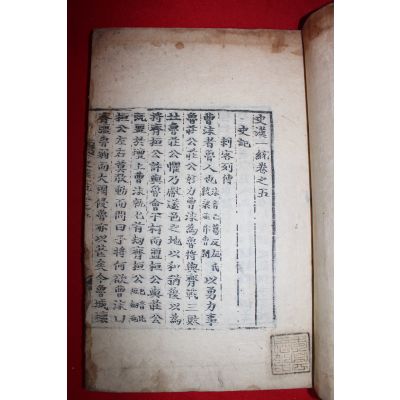 史漢一統卷之五
史記
刺客列傳
曹沫者魯人也以勇力事
魯莊公莊公好力曹沫爲魯將與齊戰三敗
北魯莊公懼乃獻遂邑之地以和猶復以爲
將齊桓公許與魯會于柯而盟桓公與莊公
既盟於壇上曹沫執匕首劫齊桓公桓公
左右莫敢動而問曰子將何欲曹沫曰
齊強魯弱而大國侵魯亦以甚矣今魯城壞